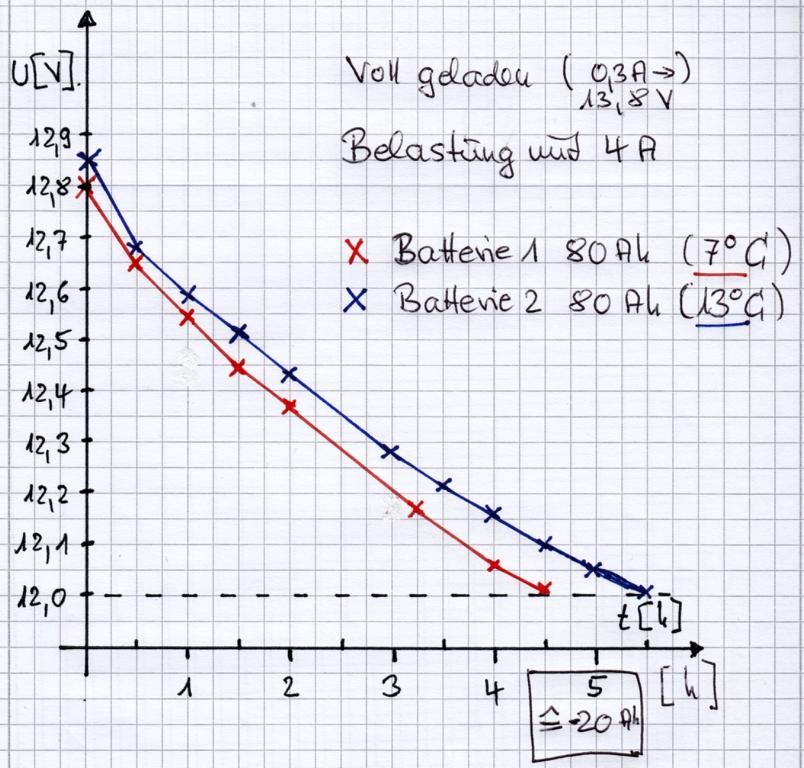 U[V]
Voll geladen (0,3A→)
13,8V
Belastung mit 4A
12,9
12,8
12,7
12,6
12,5
12,4
12,3
12,2
12,1
12,0
Batterie 1 80 Ah (7°C)
Batterie 2 80 Ah (13°C)
t[h]
1 2 3 4 5 [h]
≙ -20 Ah